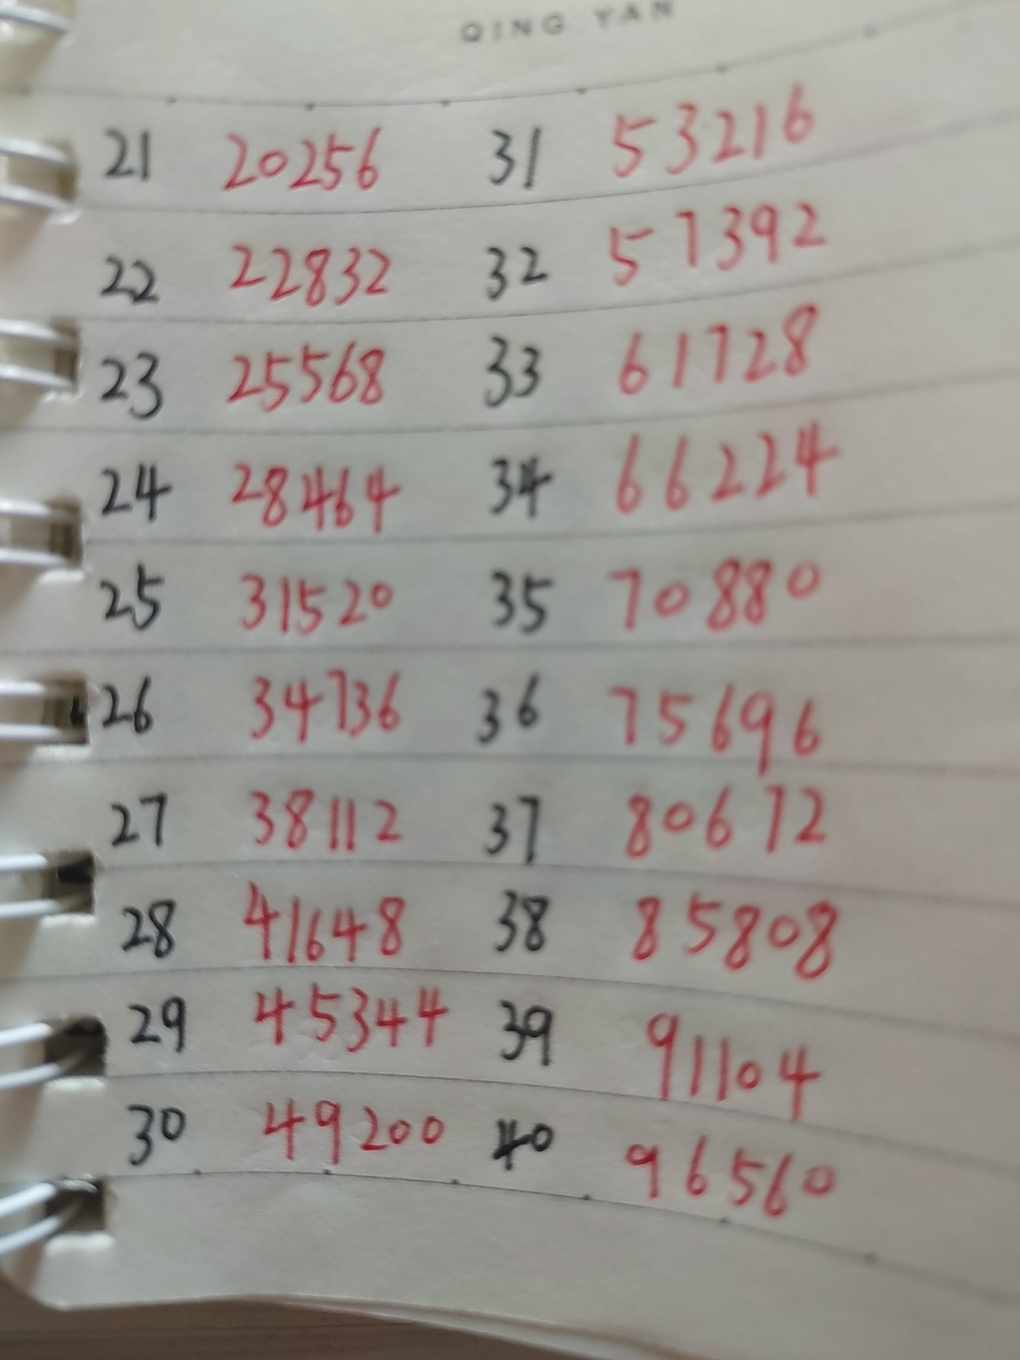 QING YAN
21 20256 31 53216
22 22832 32 57392
23 25568 33 61728
24 28464 34 66224
25 31520 35 70880
26 34736 36 75696
27 38112 37 80672
28 41648 38 85808
29 45344 39 91104
30 49200 40 96560